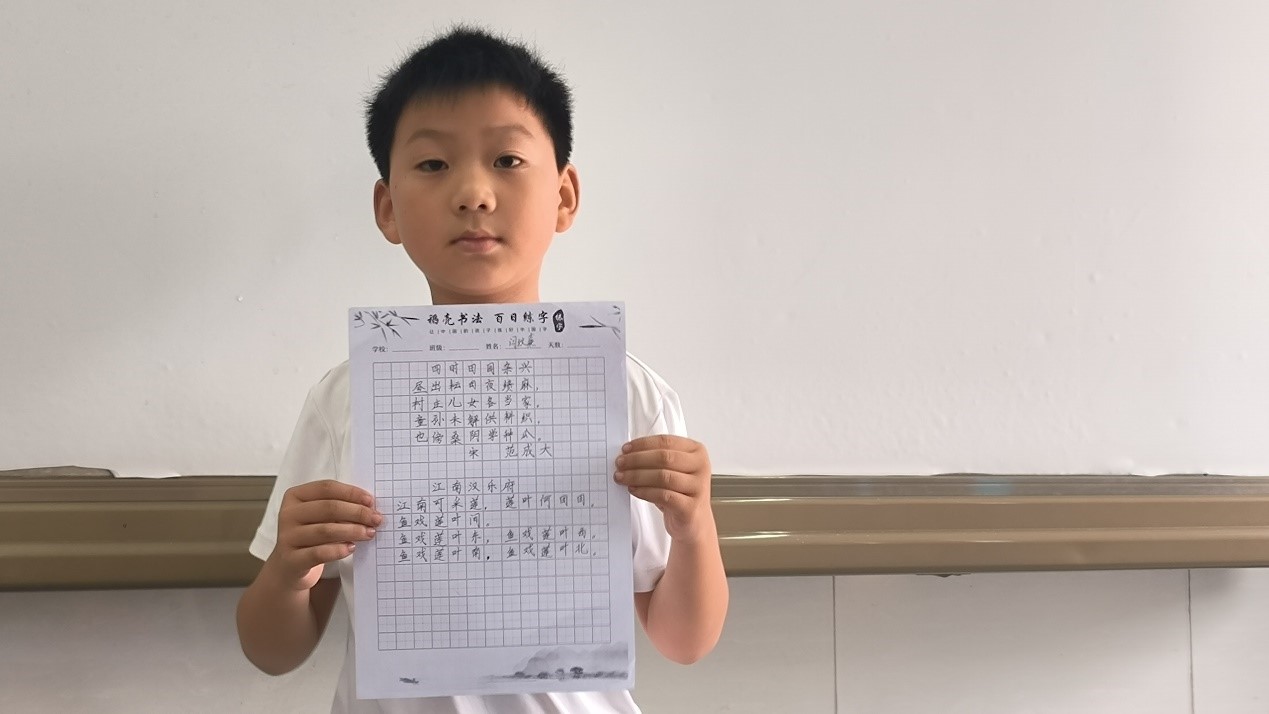 稻壳书法 百日练字 练字
学校： 班级： 姓名： 天数：
四时田园杂兴
昼出耘田夜绩麻，
村庄儿女各当家。
童孙未解供耕织，
也傍桑阴学种瓜。
宋 范成大
江南汉乐府
江南可采莲，莲叶何田田，
鱼戏莲叶间。
鱼戏莲叶东，鱼戏莲叶西，
鱼戏莲叶南，鱼戏莲叶北。